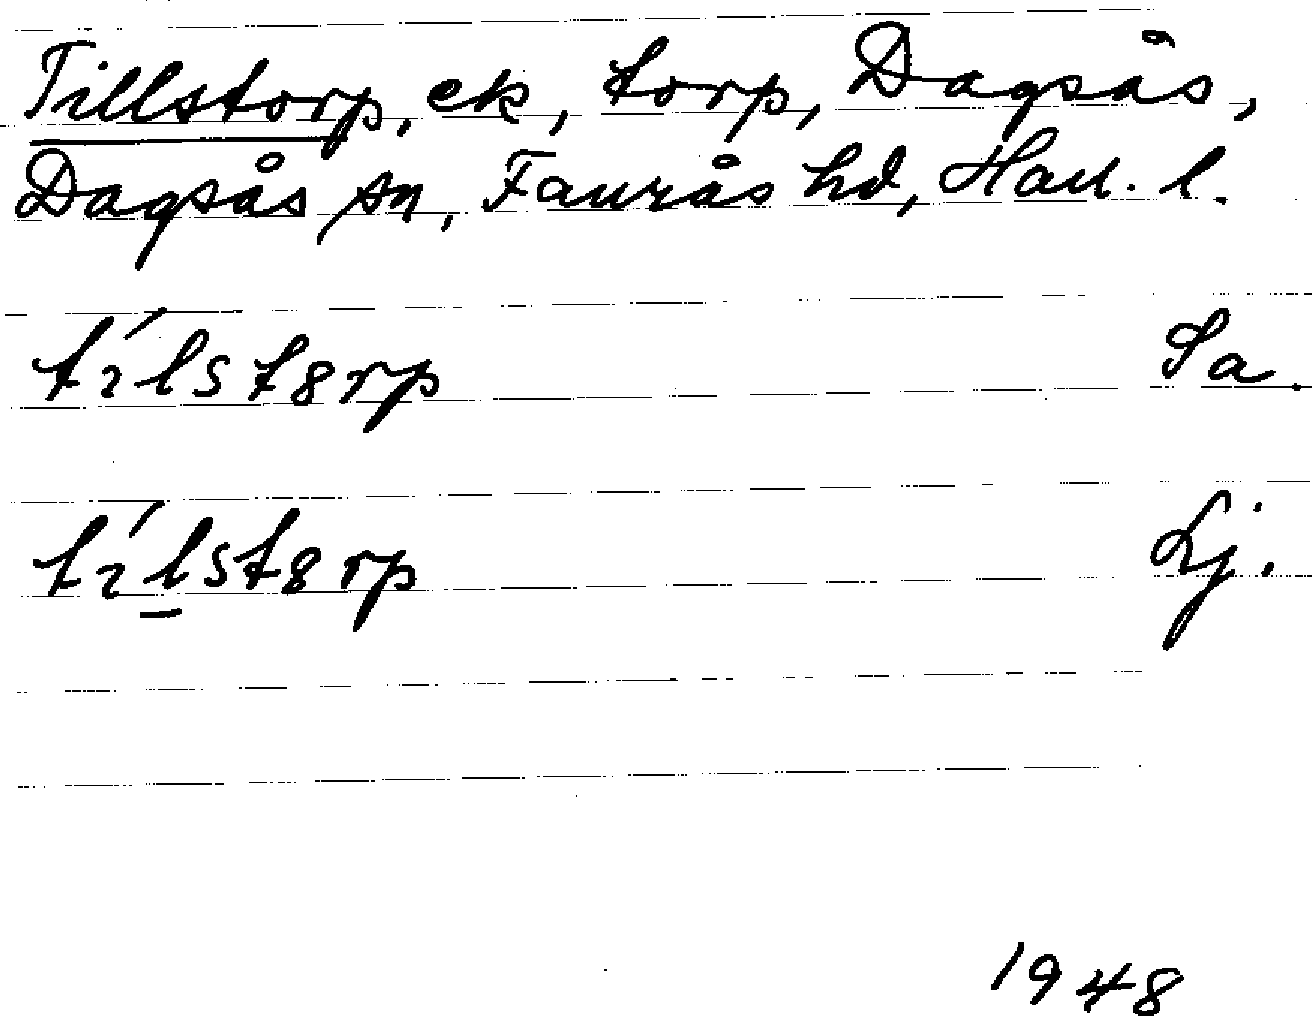 Tillstorp, ek, torp, Dagsås,
Dagsås sn, Faurås hd, Hall. l.
tı́lstȣrp Sa.
tı́l̲stȣrp Lj.
1948